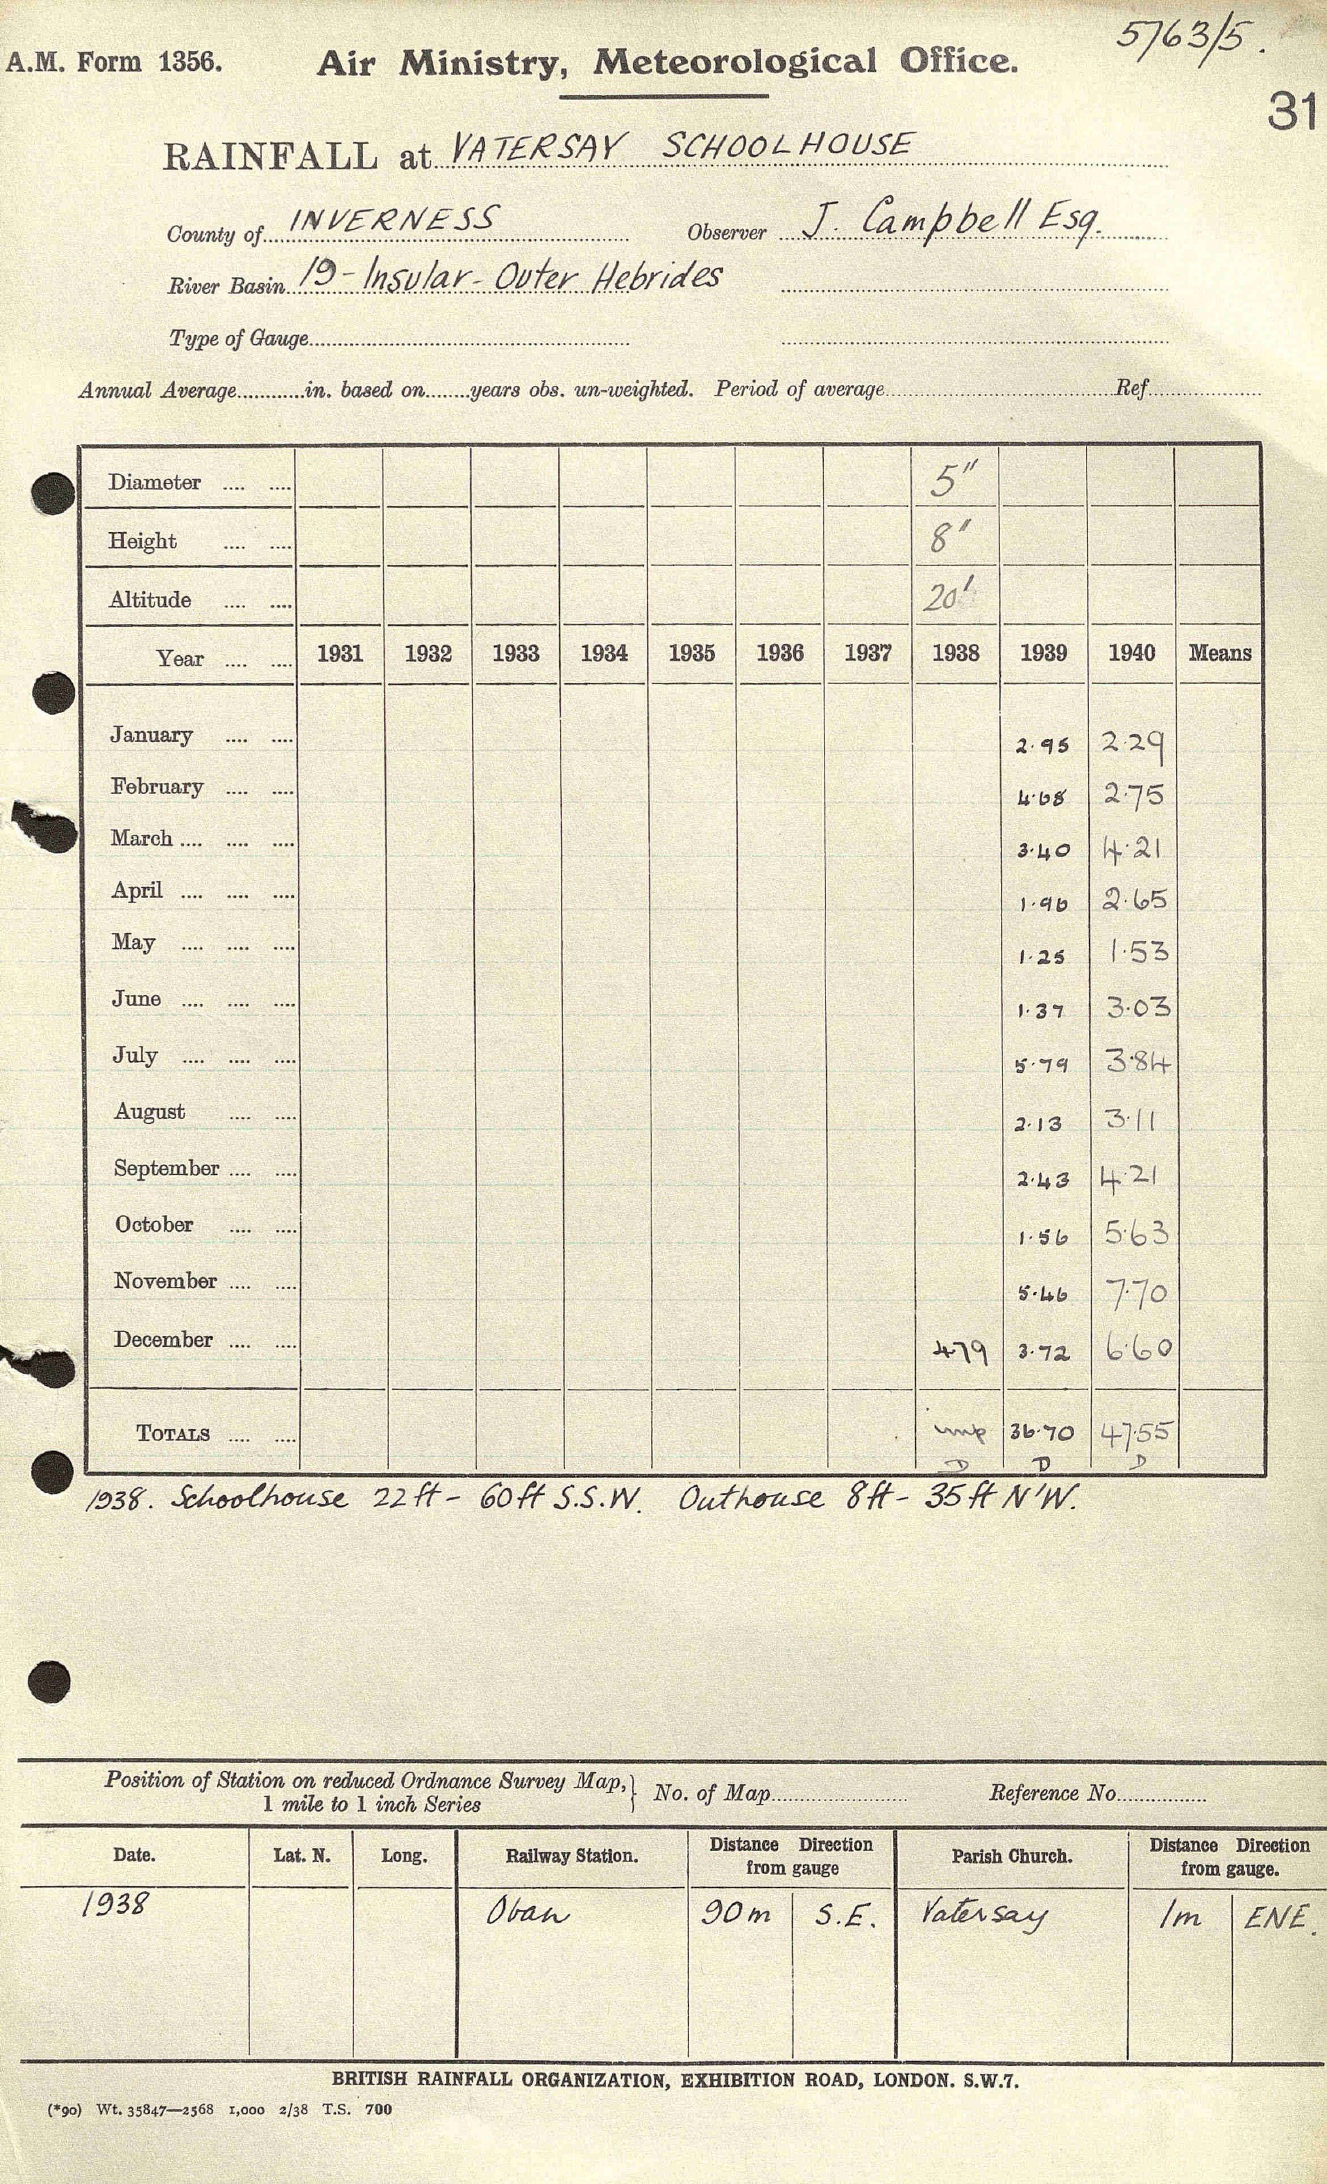 5763/5.
A.M. Form 1356. Air Ministry, Meteorological Office.
31
RAINFALL at VATERSAY SCHOOLHOUSE
County of INVERNESS Observer J. Campbell Esq.
River Basin 19 - Insular - Outer Hebrides
Type of Gauge
Annual Average in. based on years obs. un-weighted. Period of average Ref
Diameter 5"
Height 8"
Altitude 20'
Year 1931 1932 1933 1934 1935 1936 1937 1938 1939 1940 Means
January 2.95 2.29
February 4.68 2.75
March 3.40 4.21
April 1.96 2.65
May 1.25 1.53
June 1.37 3.03
July 5.79 3.84
August 2.13 3.11
September 2.43 4.21
October 1.56 5.63
November 5.46 7.70
December 4.79 3.72 6.60
TOTALS imp 36.70 47.55
D D D
1938. Schoolhouse 22ft - 60ft S.S.W. Outhouse 8ft - 35ft N'W.
Position of Station on reduced Ordnance Survey Map, No. of Map Reference No.
1 mile to 1 inch Series
Date. Lat. N. Long. Railway Station. Distance Direction from gauge Parish Church. Distance Direction from gauge.
1938 Oban 90m S.E. Vatersay 1m ENE.
BRITISH RAINFALL ORGANIZATION, EXHIBITION ROAD, LONDON. S.W.7.
(*90) Wt. 35847—2568 1,000 2/38 T.S. 700